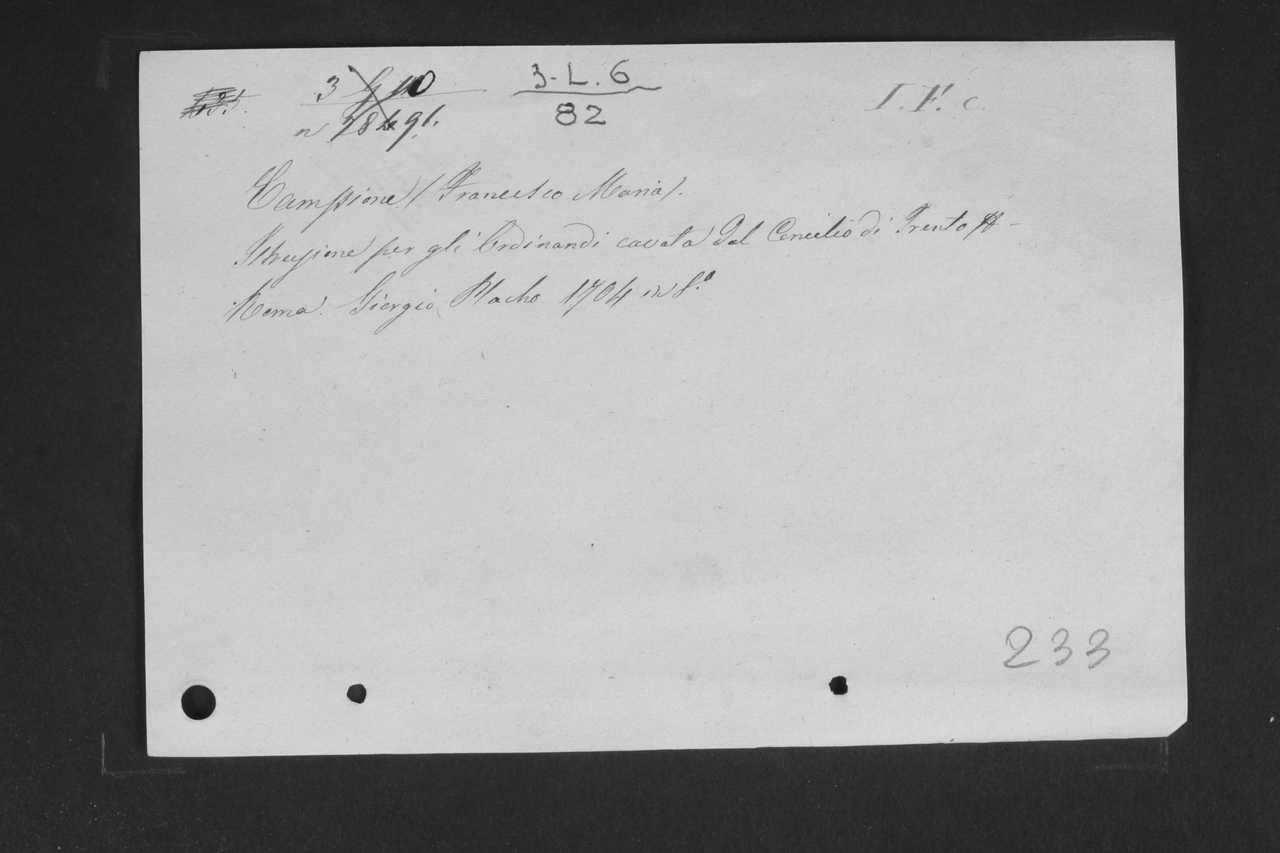 3-L.6
82
I. F. c.
Campione (Francesco Maria).
Istruzione per gli Ordinandi cavata dal Concilio di Trento
Roma. Giorgio Placho 1704 in 8.º
233